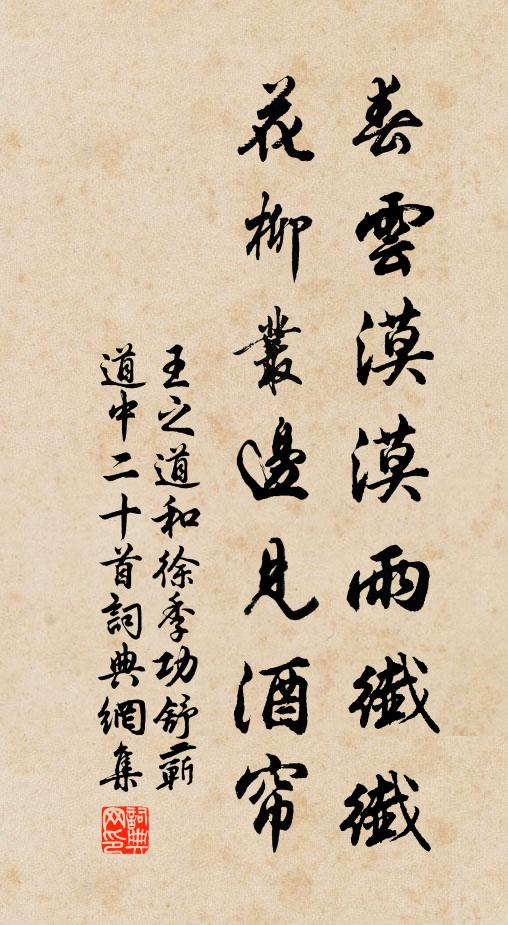 春雲漠漠雨纖纖
花柳叢邊見酒帘
王之道和徐季功舒蘄
道中二十首詞典網集
詞典
网印